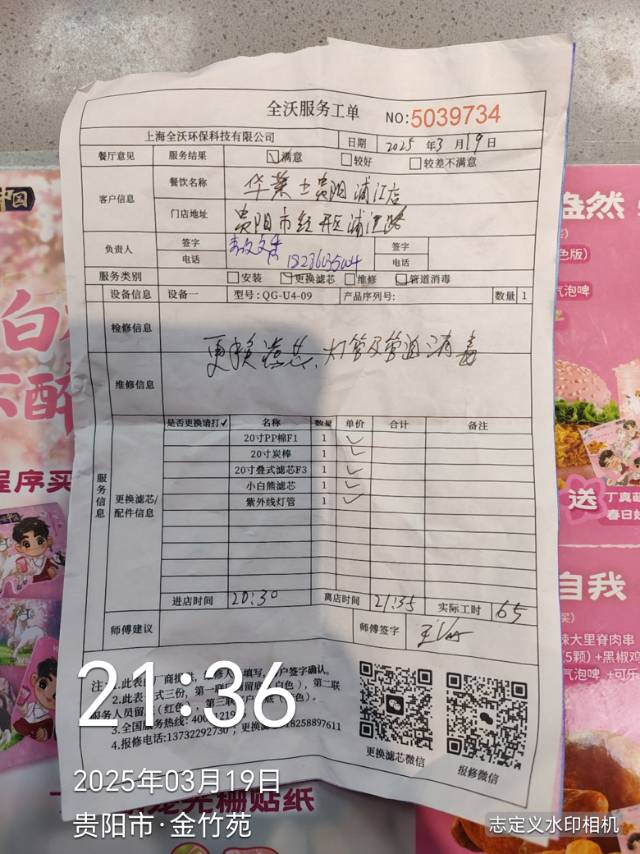 全沃服务工单
NO:5039734
上海全沃环保科技有限公司 日期 2025 年 3 月 19 日
餐厅意见 服务结果 满意 较好 较差不满意
客户信息 餐饮名称 华莱士贵阳浦江店
门店地址 贵阳市经开区浦江路
负责人 签字 签字
电话 电话
服务类别 安装 更换滤芯 维修 管道消毒
设备信息 设备一 型号:QG-U4-09 产品序列号: 数量 1
检修信息
更换滤芯、灯管及管道消毒
维修信息
服务信息
更换滤芯/配件信息
是否更换请打✓ 名称 数量 单价 合计 备注
20寸PP棉F1 1 ✓
20寸炭棒 1 ✓
20寸叠式滤芯F3 1 ✓
小白熊滤芯 1 ✓
紫外线灯管 1 ✓
进店时间 20:30 离店时间 21:35 实际工时 65
师傅建议 师傅签字
客户签字确认。
第二联
4.报修电话:13732292730
18258897611
更换滤芯微信
报修微信
21:36
2025年03月19日
贵阳市·金竹苑
志定义水印相机
中国
白
不醉
程序买
光栅贴纸
盎然
色版)
气泡啤
送
丁真
春日
自我
辣大里脊肉串
5颗)+黑椒鸡
气泡啤 +可乐